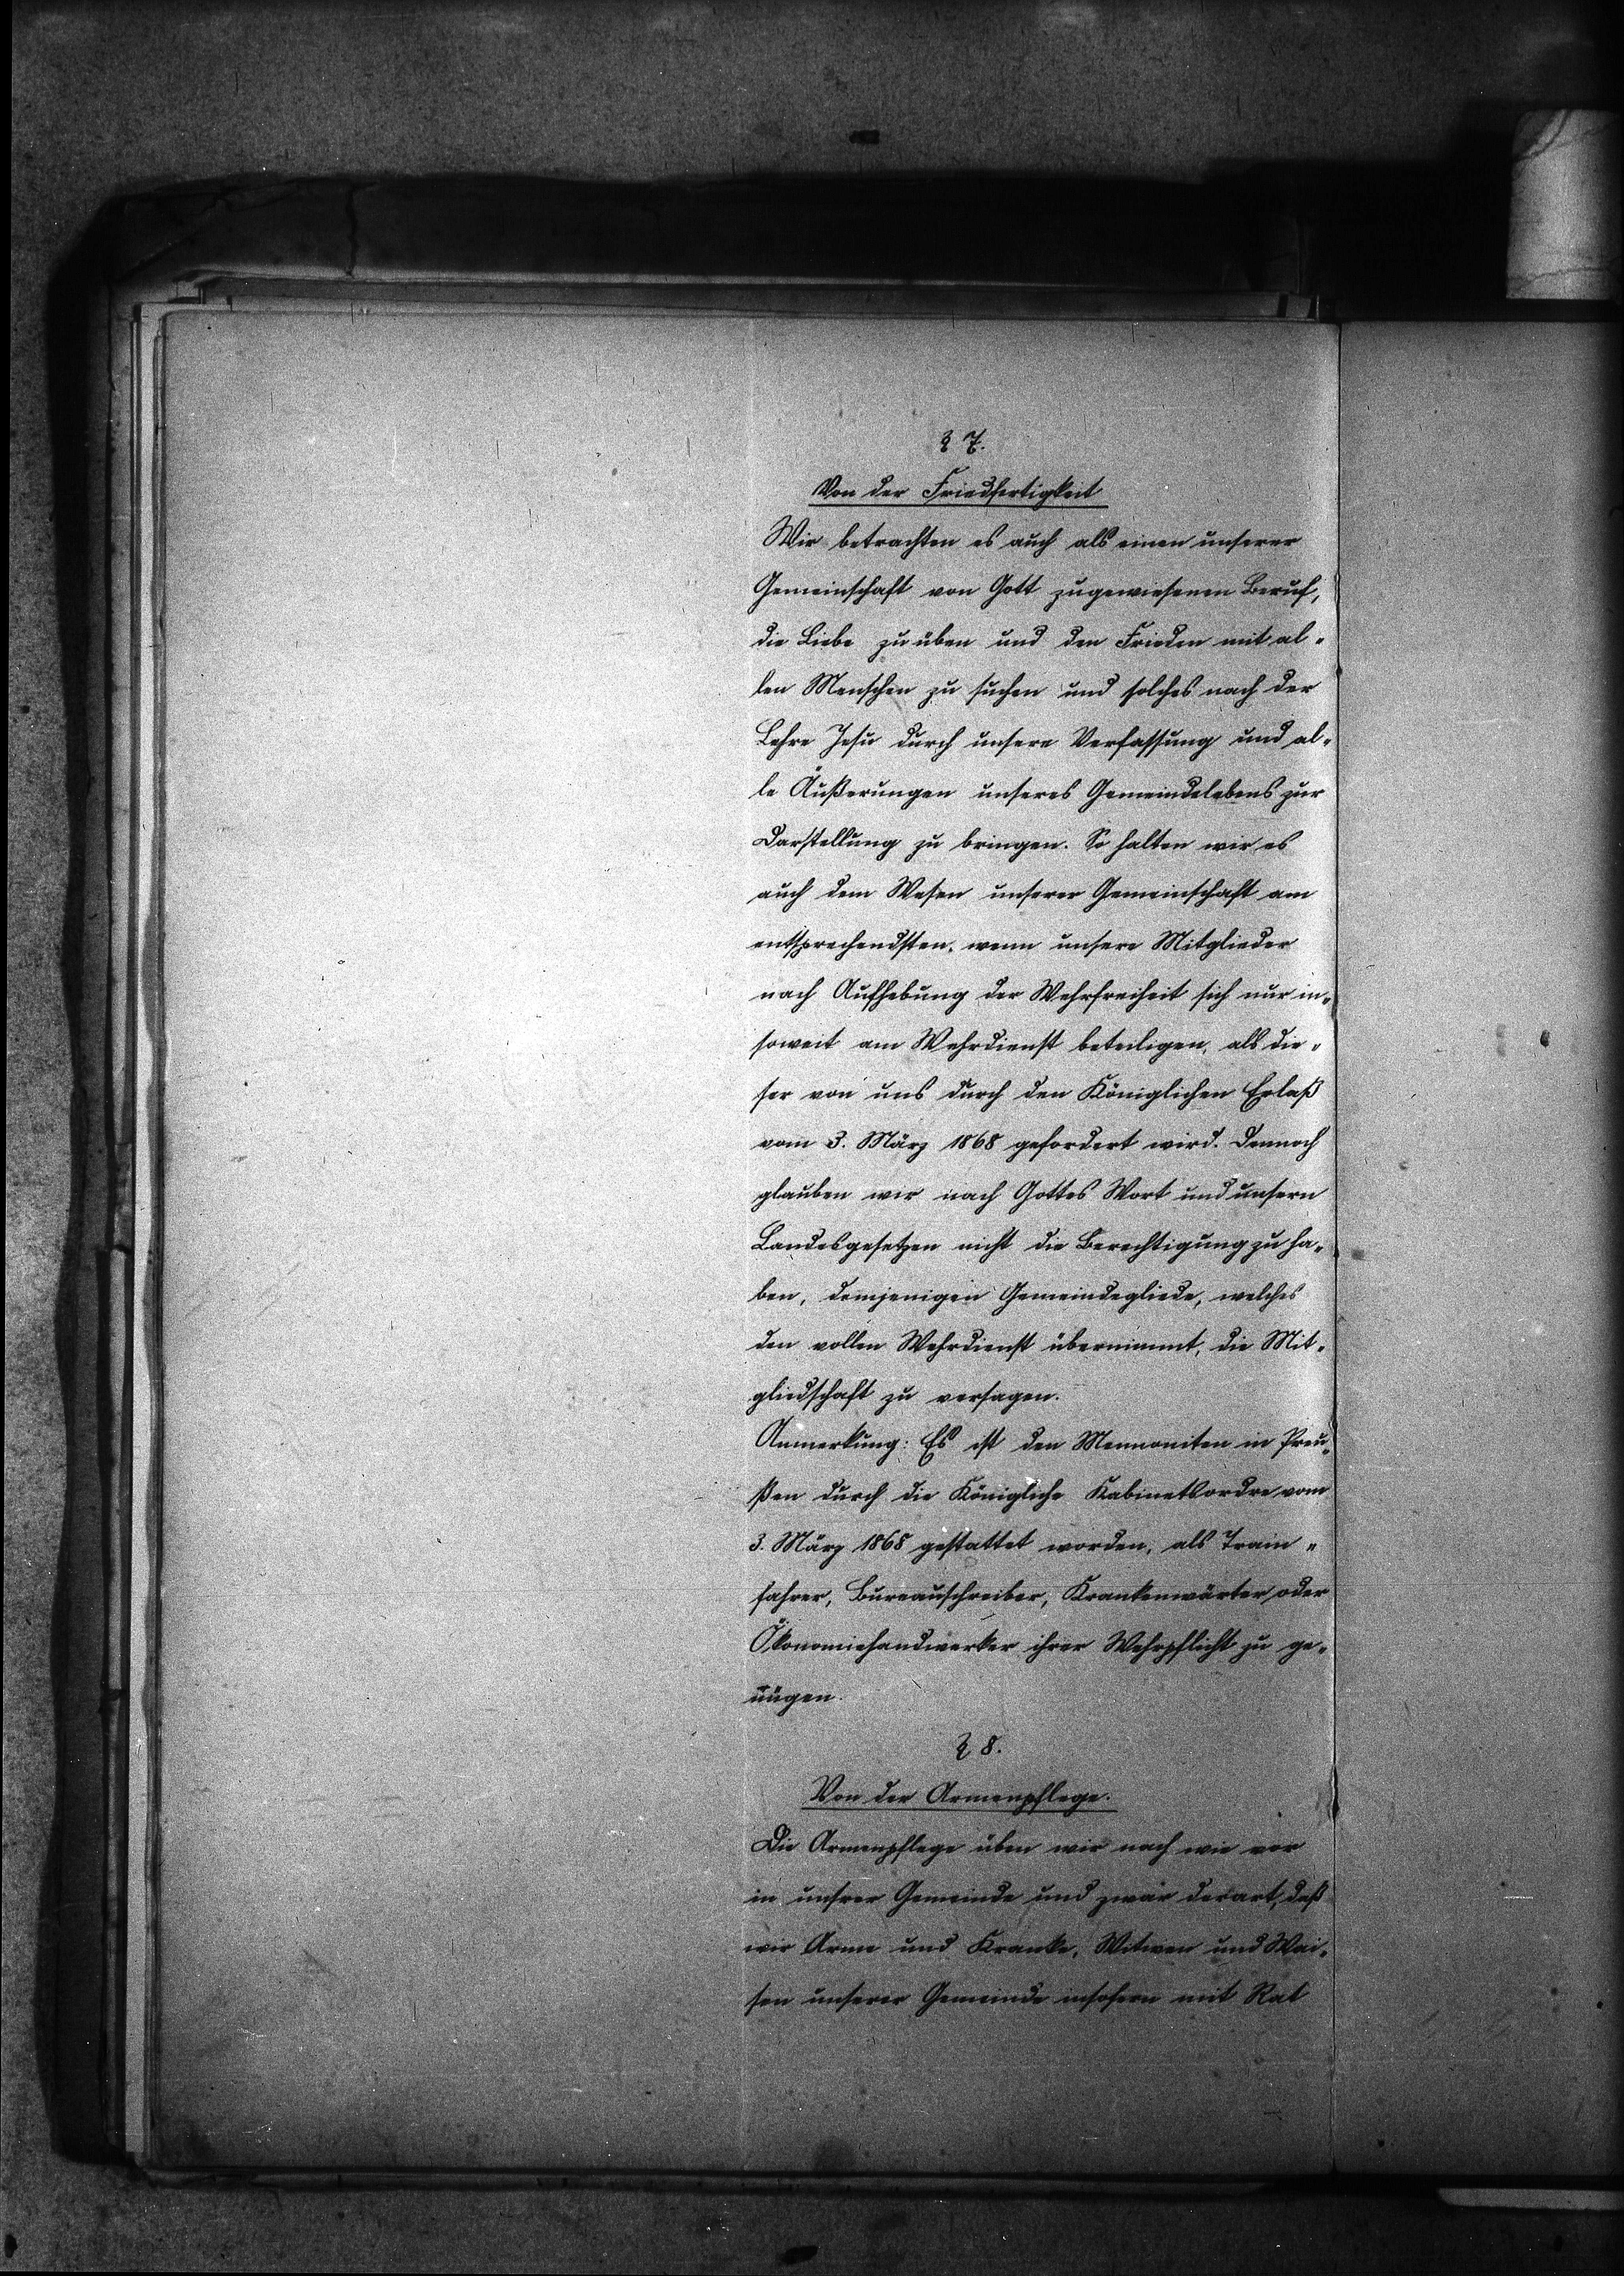 § 7.
Von der Friedfertigkeit
Wir betrachten es auch als einen unserer
Gemeinschaft von Gott zugewiesenen Beruf,
die Liebe zu üben und den Frieden mit al-
len Menschen zu suchen und solches nach der
Lehre Jesu durch unsere Verfassung und al-
le Äußerungen unseres Gemeindelebens zur
Darstellung zu bringen. So halten wir es
auch dem Wesen unserer Gemeinschaft am
entsprechendsten, wenn unsere Mitglieder
nach Aufhebung der Wehrfreiheit sich nur in-
soweit am Wehrdienst beteiligen, als die-
ser von uns durch den Königlichen Erlaß
vom 3. März 1868 gefordert wird. Dennoch
glauben wir nach Gottes Wort und unsern
Landesgesetzen nicht die Berechtigung zu ha-
ben, demjenigen Gemeindegliede, welches
den vollen Wehrdienst übernimmt, die Mit-
gliedschaft zu versagen.
Anmerkung: Es ist den Mennoniten in Preu-
ßen durch die Königliche Kabinetsordre vom
3. März 1868 gestattet worden, als Train-
fahrer, Bureauschreiber, Krankenwärter oder
Ökonomiehandwerker ihrer Wehrpflicht zu ge-
nügen.
§ 8.
Von der Armenpflege.
Die Armenpflege üben wir nach wie vor
in unsrer Gemeinde und zwar derart, daß
wir Arme und Kranke, Witwen und Wai-
sen unserer Gemeinde insofern mit Rat